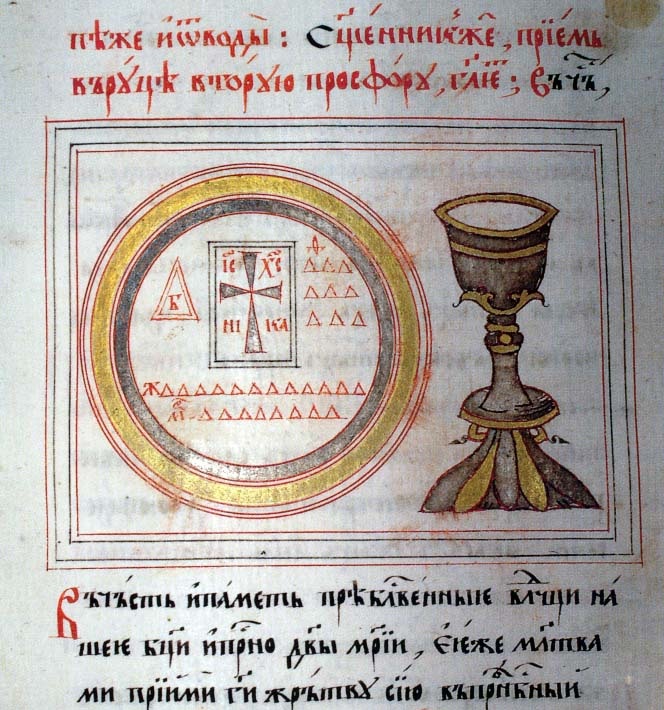 пѣже и҆ ѿ воды̀ : Сщ҃е́нникже , прїе́мь
въру́цѣ вторꙋ́ю просфо́рꙋ , гл҃е ; Въче́ ,
і҆с х҃с
ни ка
Б
Въче́сть и҆ па́меть пребл҃гве́нные вл҃чци на́
шеѧ бц҃и и҆ прⷭ҇но дв҃ы мр҃і́и , є҆ѧ́же мл҃тва
ми прїимѝ гдⷭ҇и же́ртвꙋ сїю̀ въпрен҃бⷭ҇ный